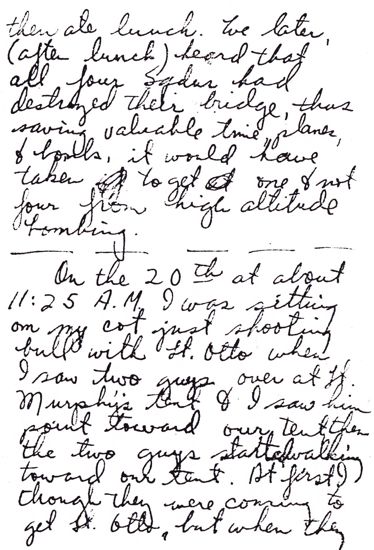 then ate lunch. We later,
(after lunch) heard that
all four Sqdns had
destroyed their bridge, thus
saving valuable time, planes,
& bombs, it would have
taken to get one & not
four from high altitude
bombing.
On the 20th at about
11:25 A.M. I was sitting
on my cot just shooting
bull with Lt. Otto when
I saw two guys over at Lt.
Murphy's tent & I saw him
point toward our tent, then
the two guys started walking
toward our tent. At first I
though they were coming to
get Lt. Otto, but when they